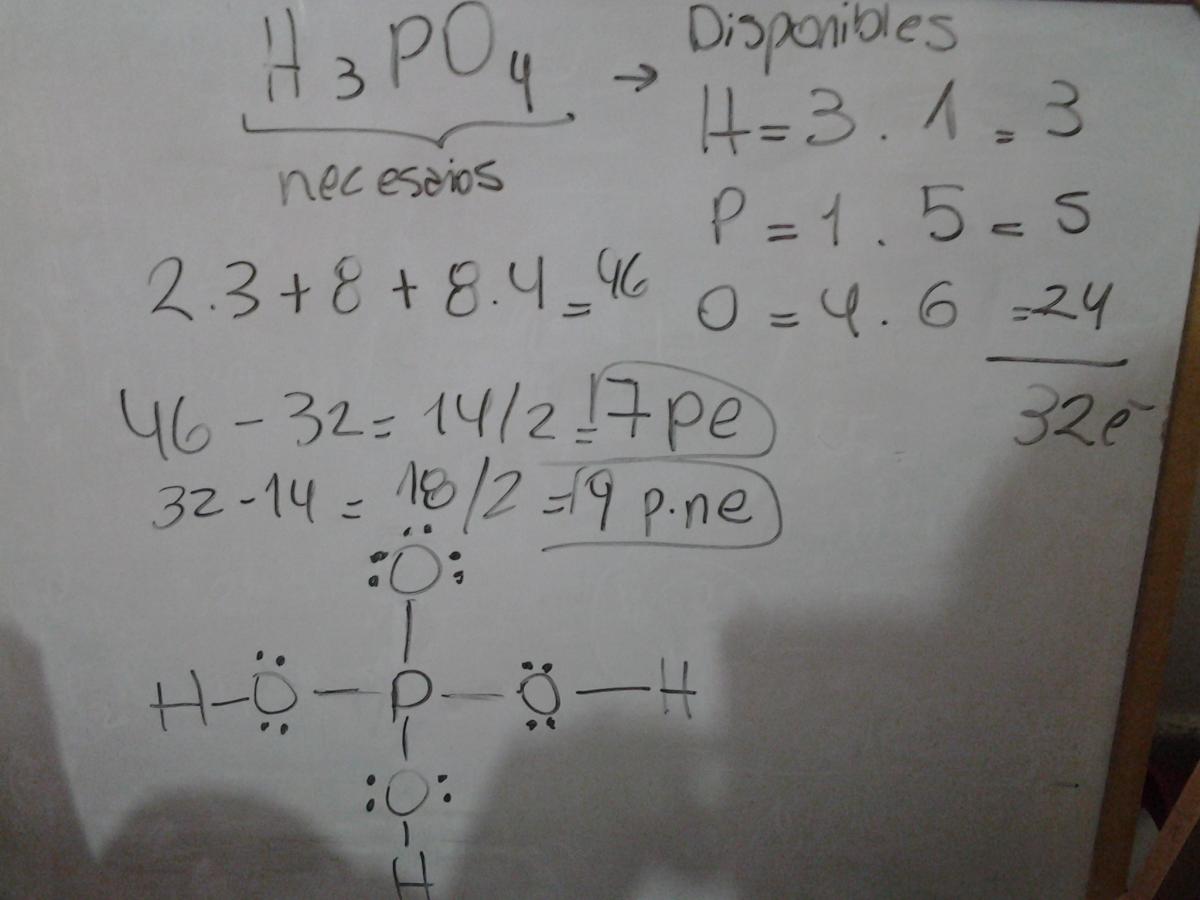 H₃PO₄ → Disponibles
H = 3 . 1 = 3
necesarios
P = 1 . 5 = 5
2.3 + 8 + 8.4 = 46
O = 4 . 6 = 24
32e⁻
46 - 32 = 14/2 = 7 pe
32 - 14 = 18/2 = 9 p.ne
:Ö:
|
H-Ö-P-Ö-H
|
:O:
|
H